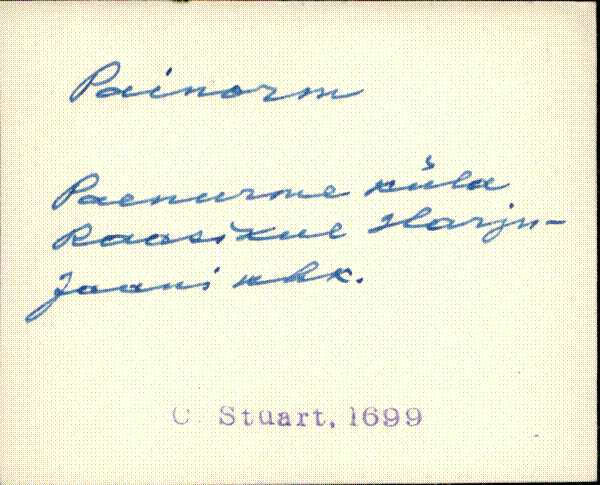 Painorm
Paenurme küla
Raasikul Harju-
Jaani khk.
C. Stuart, 1699